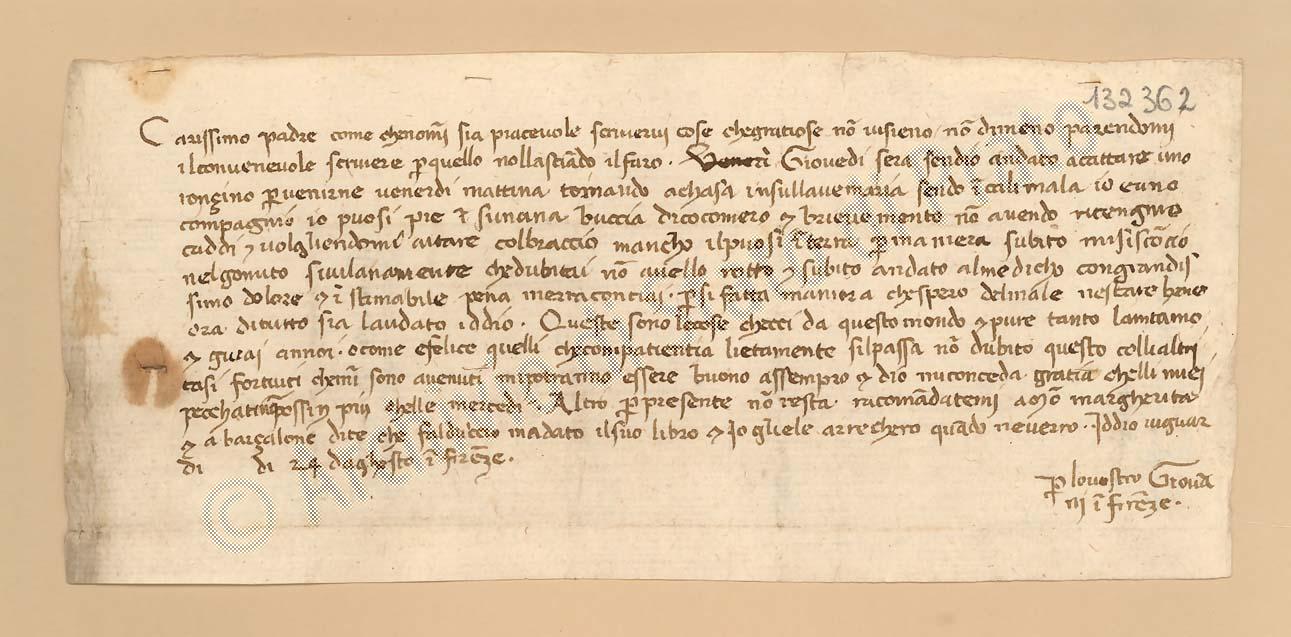 132362
Carissimo padre come chenom̄ sia piacevole scrivervi cose chegratiose nō visieno, nō dimeno parendomi
ilconvenevole scrivere p̱quello nollasciādo ilfaro. Giovedi sera sendio andato accattare uno
ronzino p̱venirne venerdi mattina tornando achasa insullavemaria sendo ī calimala io euno
compagnio io puosi pie ī suna buccia dicocomero & brievemente nō avendo ritengnio
caddi & volgliendomi aitare colbraccio mancho ilpuosi ī terra p̱maniera subito
nelgomito sivilanamente chedubitai nō avello rotto & subito andato almedicho congrandis
simo dolore & ī stimabile pena meracconciai. p̱si fatta maniera chespero delmale nestare bene
ora ditutto sia laudato iddio. Queste sono lecose checci da questo mondo & pure tanto lamiamo
& guai annoi. o come efelice quelli checompatientia lietamente silpassa nō dubito questo colli altri
casi fortuiti chem̄ sono avenuti mipotranno essere buono assempro & dio miconceda gratia chelli miei
pecchati possin piu chelle mercedi. Altro p̱presente nō resta. racomādatemi a mō margherita
& a barzalone dite che falduccio madato ilsuo libro & Io gliele arrechero quādo neverro. Iddio viguar
di di 24 daghosto ī firēze.
p̱ lovostro Giovā
ni ī firēze.
© Archivio di Stato di Prato